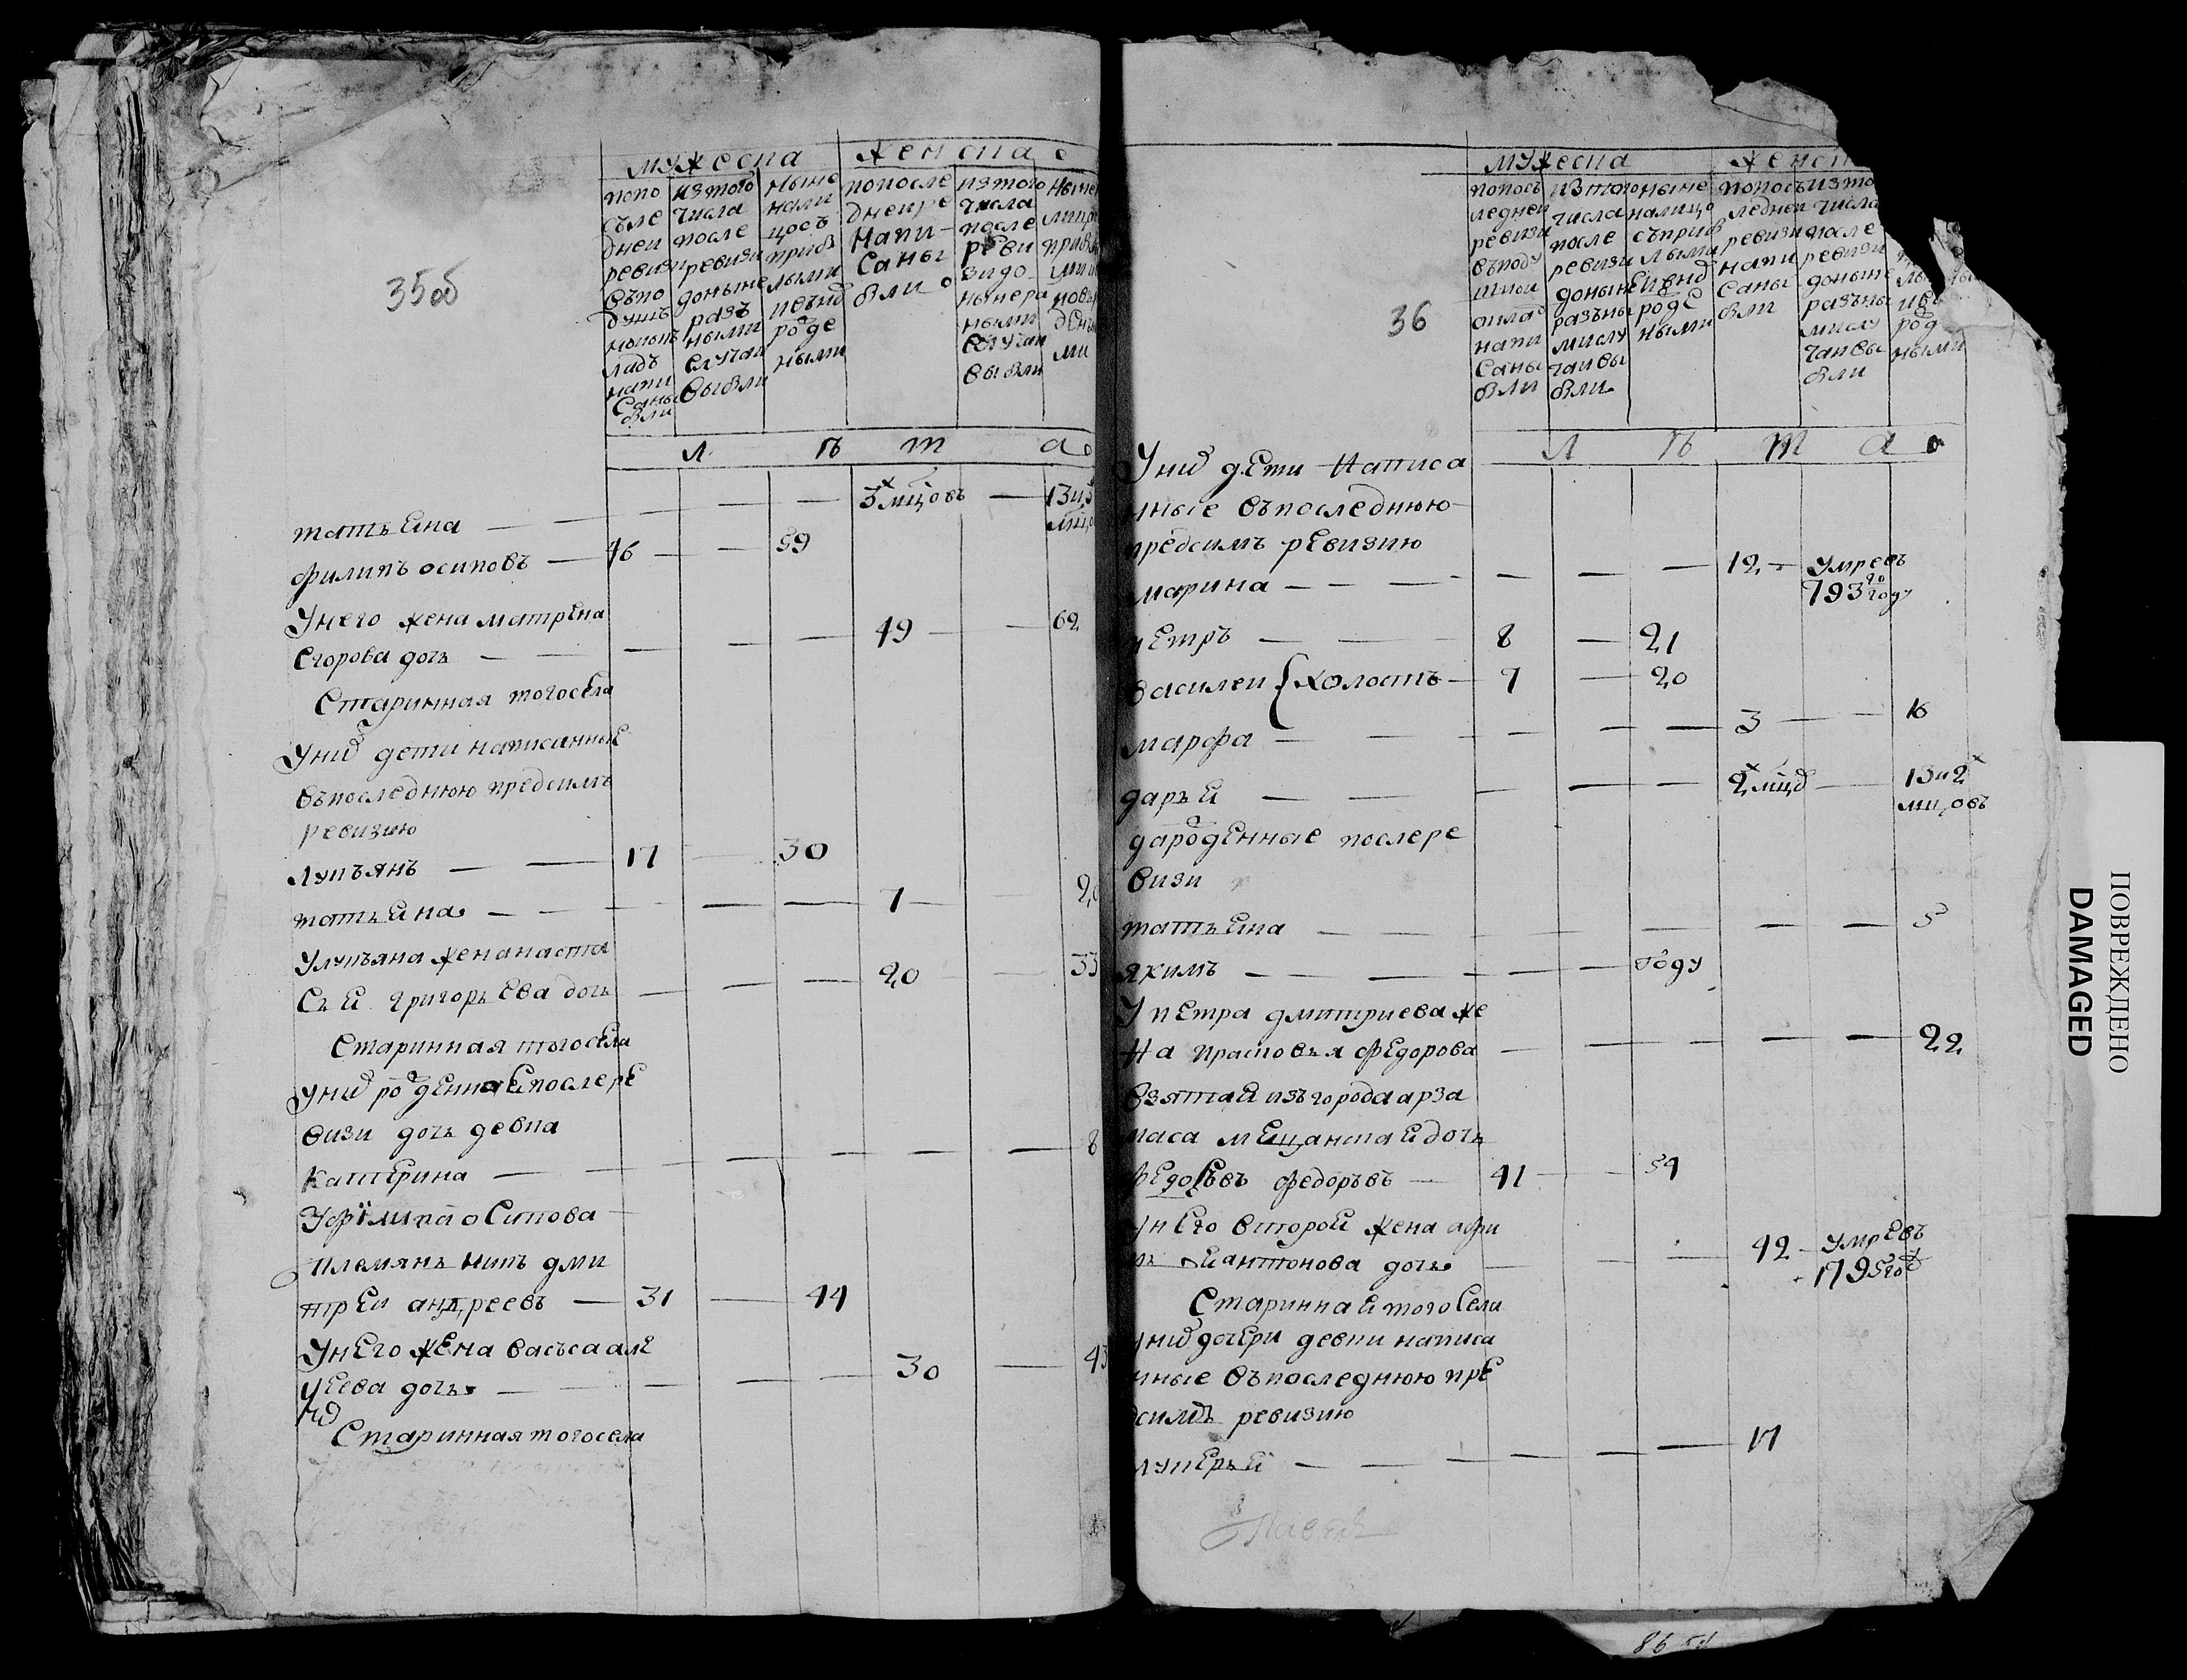 35об
мужеска
женска
попо
съле
дней
ревизи
въпо
душъ
нои окъ
ладъ
напи
саны
были
изтого
числа
после
ревизи
доныне
разъ
ными
случаи
выбыли
ныне
нали
цосъ
прибы
лыми
ивнов
роде
ными
попосле
дней ре
напи-
саны
были
изтого
числа
после
реви
зидо
нынера
ными
случаи
выбыли
лѣта
татьяна — — — — — 3 мцовъ — 13 и 3
мцо
филипъ осиповъ — 46 — — 59
Унего жена матрена
Егорова дочь — — — — — 49 — — 62
Старинная тогосела
Уних дети написанные
Въпоследнюю предсимъ
ревизию
лукъянъ — — 17 — 30
татьяна — — — — — 7 — 20
Улукъяна жена наста
сья григорьева дочь — — — 20 — 33
Старинная тогосела
Уних рожденная послере
визи дочь девка
катерина — — — — — — — 8
Уфилипа осипова
племянь никъ дми
трей андреевъ — 31 — 44
Унего жена васъса але
ѯеева дочь — — — — — 30 — 43
Старинная тогосела
36
мужеска
попосъ
ледней
ревизи
въподу
шной
оклад
напи
саны
были
изтого
числа
после
ревизи
доныне
разъны
мислу
чаивы
были
ныне
налицо
съприб
лыми
ивнов
роде
ными
попосъ
ледней
ревизи
напи
саны
были
изто
числа
после
ревизи
доныне
разъны
мислу
чаивы
были
роd
ными
лѣта
Уних дети написа
нные въпоследнюю
предсимъ ревизию
марина — — — — — — 12 — умре въ
793го году
петръ — — 8 — 21
василеи { холостъ — 7 — 20
марфа — — — — — — 3 — — 16
дарья — — — — — 2 мцо — 13 и 2
мцовъ
дарожденные послере
визи
татьяна — — — — — — — — 5
якимъ — — — — — году
У петра дмитриева же
на прасковья федорова — — — — — 22
Взятая изъгорода арза
маса мещанская дочь
федоръвъ — 41 — — 54
унего второй жена афи
антонова дочь — — — 42 — умре въ
1795год
Старинная тогосела
уних дочери девки написа
нные въпоследнюю пре
дсимъ ревизию
лукерья — — — — — — 17
86
ПОВРЕЖДЕНО
DAMAGED